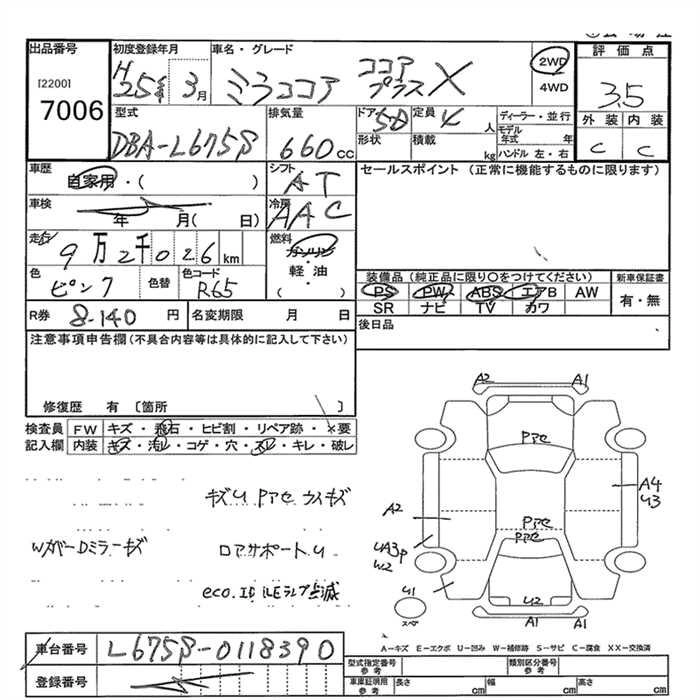 出品番号
[2200]
7006
初度登録年月
H25年 3月
車名・グレード
ミラココア ココアプラスX
2WD
4WD
評価点
3.5
外装 内装
C C
型式
DBA-L675S
排気量
660cc
ドア 5D
形状
定員 4人
積載 kg
ディーラー・並行
モデル年式 年
ハンドル 左・右
車歴
自家用・( )
シフト
AT
車検
年 月( 日)
冷房
AAC
走行
9万2千026km
燃料
ガソリン
軽・油
( )
色
ピンク
色替
色コード
R65
R券 8-140円
名変期限 月 日
セールスポイント (正常に機能するものに限ります)
装備品 (純正品に限り○をつけてください)
新車保証書
PS PW ABS エアB AW
SR ナビ TV カワ
有・無
後日品
注意事項申告欄 (不具合内容等は具体的に記入して下さい)
修復歴 有 〔箇所 〕
検査員
記入欄
FW キズ・飛石・ヒビ割・リペア跡・×要
内装 キズ・汚レ・コゲ・穴・スレ・キレ・破レ
キズU Pアセ ウスイキズ
WカバーDミラーキズ
ロアサポートU
eco.IDLEランプ点滅
A2 A1
Pアセ
A4
U3
A2
Pアセ
Pアセ
UA3P
W2
U1
U2
スペア
A1 A1
A-キズ E-エクボ U-凹み W-補修跡 S-サビ C-腐食 XX-交換済
車台番号 L675S-0118390
登録番号
型式指定番号 参考
類別区分番号 参考
車庫証明用 参考
長さ cm 幅 cm 高さ cm